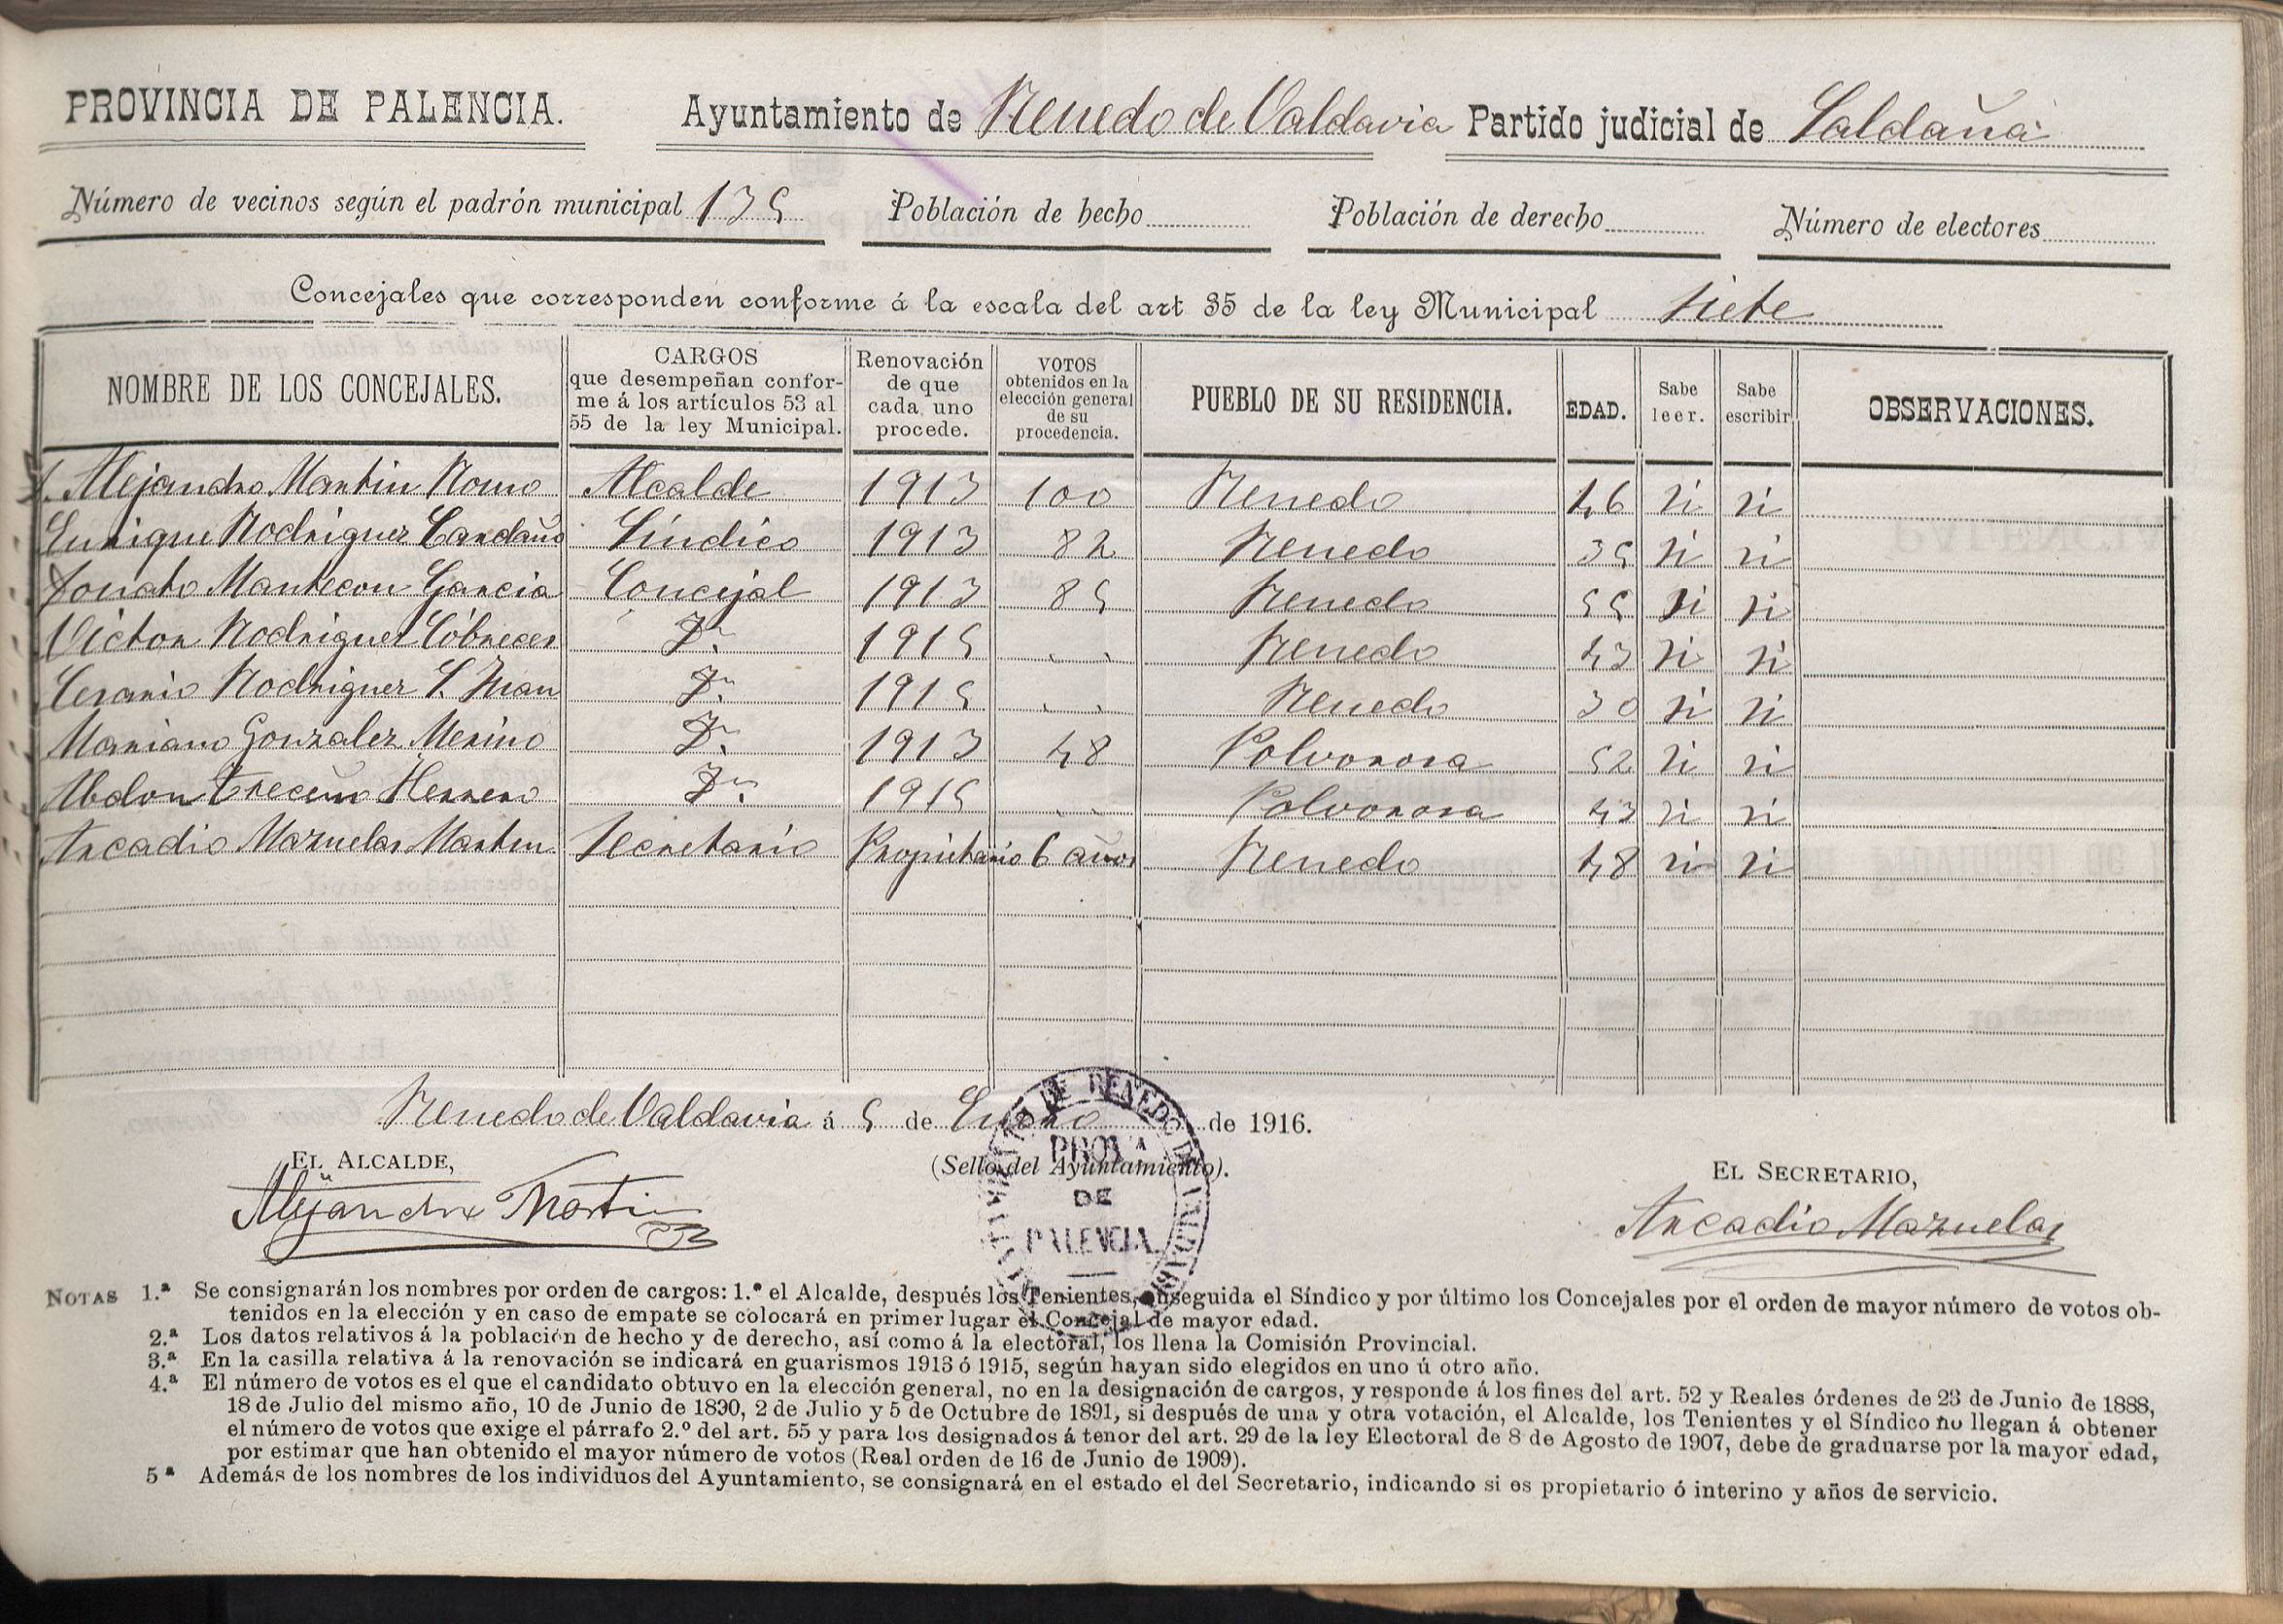 PROVINCIA DE PALENCIA. Ayuntamiento de Renedo de Valdavia Partido judicial de Saldaña
Número de vecinos según el padrón municipal 135 Población de hecho Población de derecho Número de electores
Concejales que corresponden conforme á la escala del art 35 de la ley Municipal siete
NOMBRE DE LOS CONCEJALES. CARGOS que desempeñan conforme á los artículos 53 al 55 de la ley Municipal. Renovación de que cada uno procede. VOTOS obtenidos en la elección general de su procedencia. PUEBLO DE SU RESIDENCIA. EDAD. Sabe leer. Sabe escribir OBSERVACIONES.
Alejandro Martin Romo Alcalde 1913 100 Renedo 46 si si
Enrique Rodriguez Candaño Síndico 1913 82 Renedo 35 si si
Donato Mantecon Garcia Concejal 1913 85 Renedo 55 si si
Victor Rodriguez Cóbreces Yd. 1915 " " Renedo 43 si si
Cesario Rodriguez S. Juan Yd. 1915 " " Renedo 30 si si
Mariano Gonzalez Merino Yd. 1913 48 Polvorosa 52 si si
Abdon Treceño Herrero Yd. 1915 " " Polvorosa 43 si si
Arcadio Mazuelas Martin Secretario Propietario 6 años Renedo 48 si si
Renedo de Valdavia á 5 de Enero de 1916.
EL ALCALDE, (Sello del Ayuntamiento). EL SECRETARIO,
Alejandro Martin
Arcadio Mazuelas
PROVA
DE
PALENCIA
NOTAS 1.ª Se consignarán los nombres por orden de cargos: 1.º el Alcalde, después los Tenientes, enseguida el Síndico y por último los Concejales por el orden de mayor número de votos ob-
tenidos en la elección y en caso de empate se colocará en primer lugar el Concejal de mayor edad.
2.ª Los datos relativos á la población de hecho y de derecho, así como á la electoral, los llena la Comisión Provincial.
3.ª En la casilla relativa á la renovación se indicará en guarismos 1913 ó 1915, según hayan sido elegidos en uno ú otro año.
4.ª El número de votos es el que el candidato obtuvo en la elección general, no en la designación de cargos, y responde á los fines del art. 52 y Reales órdenes de 23 de Junio de 1888,
18 de Julio del mismo año, 10 de Junio de 1890, 2 de Julio y 5 de Octubre de 1891, si después de una y otra votación, el Alcalde, los Tenientes y el Síndico no llegan á obtener
el número de votos que exige el párrafo 2.º del art. 55 y para los designados á tenor del art. 29 de la ley Electoral de 8 de Agosto de 1907, debe de graduarse por la mayor edad,
por estimar que han obtenido el mayor número de votos (Real orden de 16 de Junio de 1909).
5ª Además de los nombres de los individuos del Ayuntamiento, se consignará en el estado el del Secretario, indicando si es propietario ó interino y años de servicio.